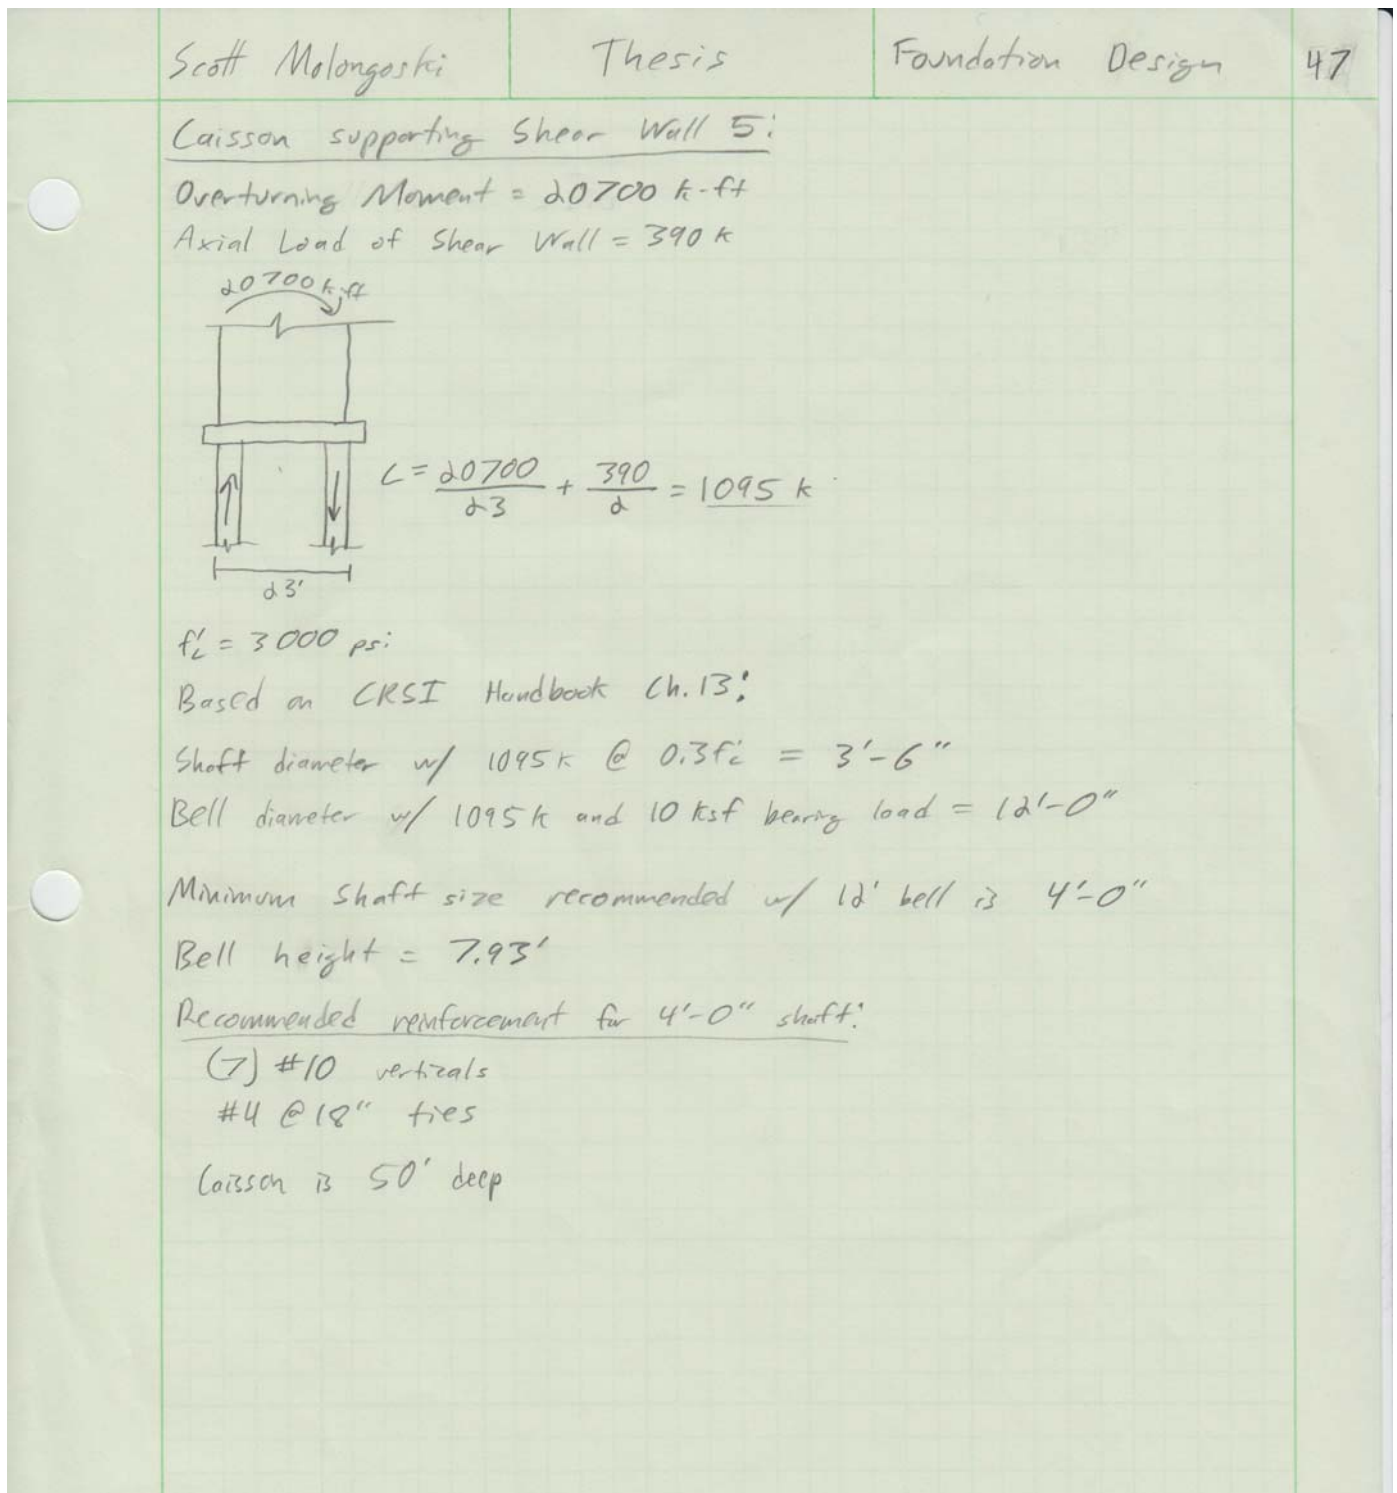 Scott Molongoski Thesis Foundation Design 47
Caisson supporting Shear Wall 5:
Overturning Moment = 20700 k-ft
Axial Load of Shear Wall = 390 k
20700 k-ft
C = 20700/23 + 390/2 = 1095 k
23'
f'c = 3000 psi
Based on CRSI Handbook Ch. 13:
Shaft diameter w/ 1095k @ 0.3f'c = 3'-6"
Bell diameter w/ 1095k and 10 ksf bearing load = 12'-0"
Minimum shaft size recommended w/ 12' bell is 4'-0"
Bell height = 7.93'
Recommended reinforcement for 4'-0" shaft:
(7) #10 verticals
#4 @ 18" ties
Caisson is 50' deep